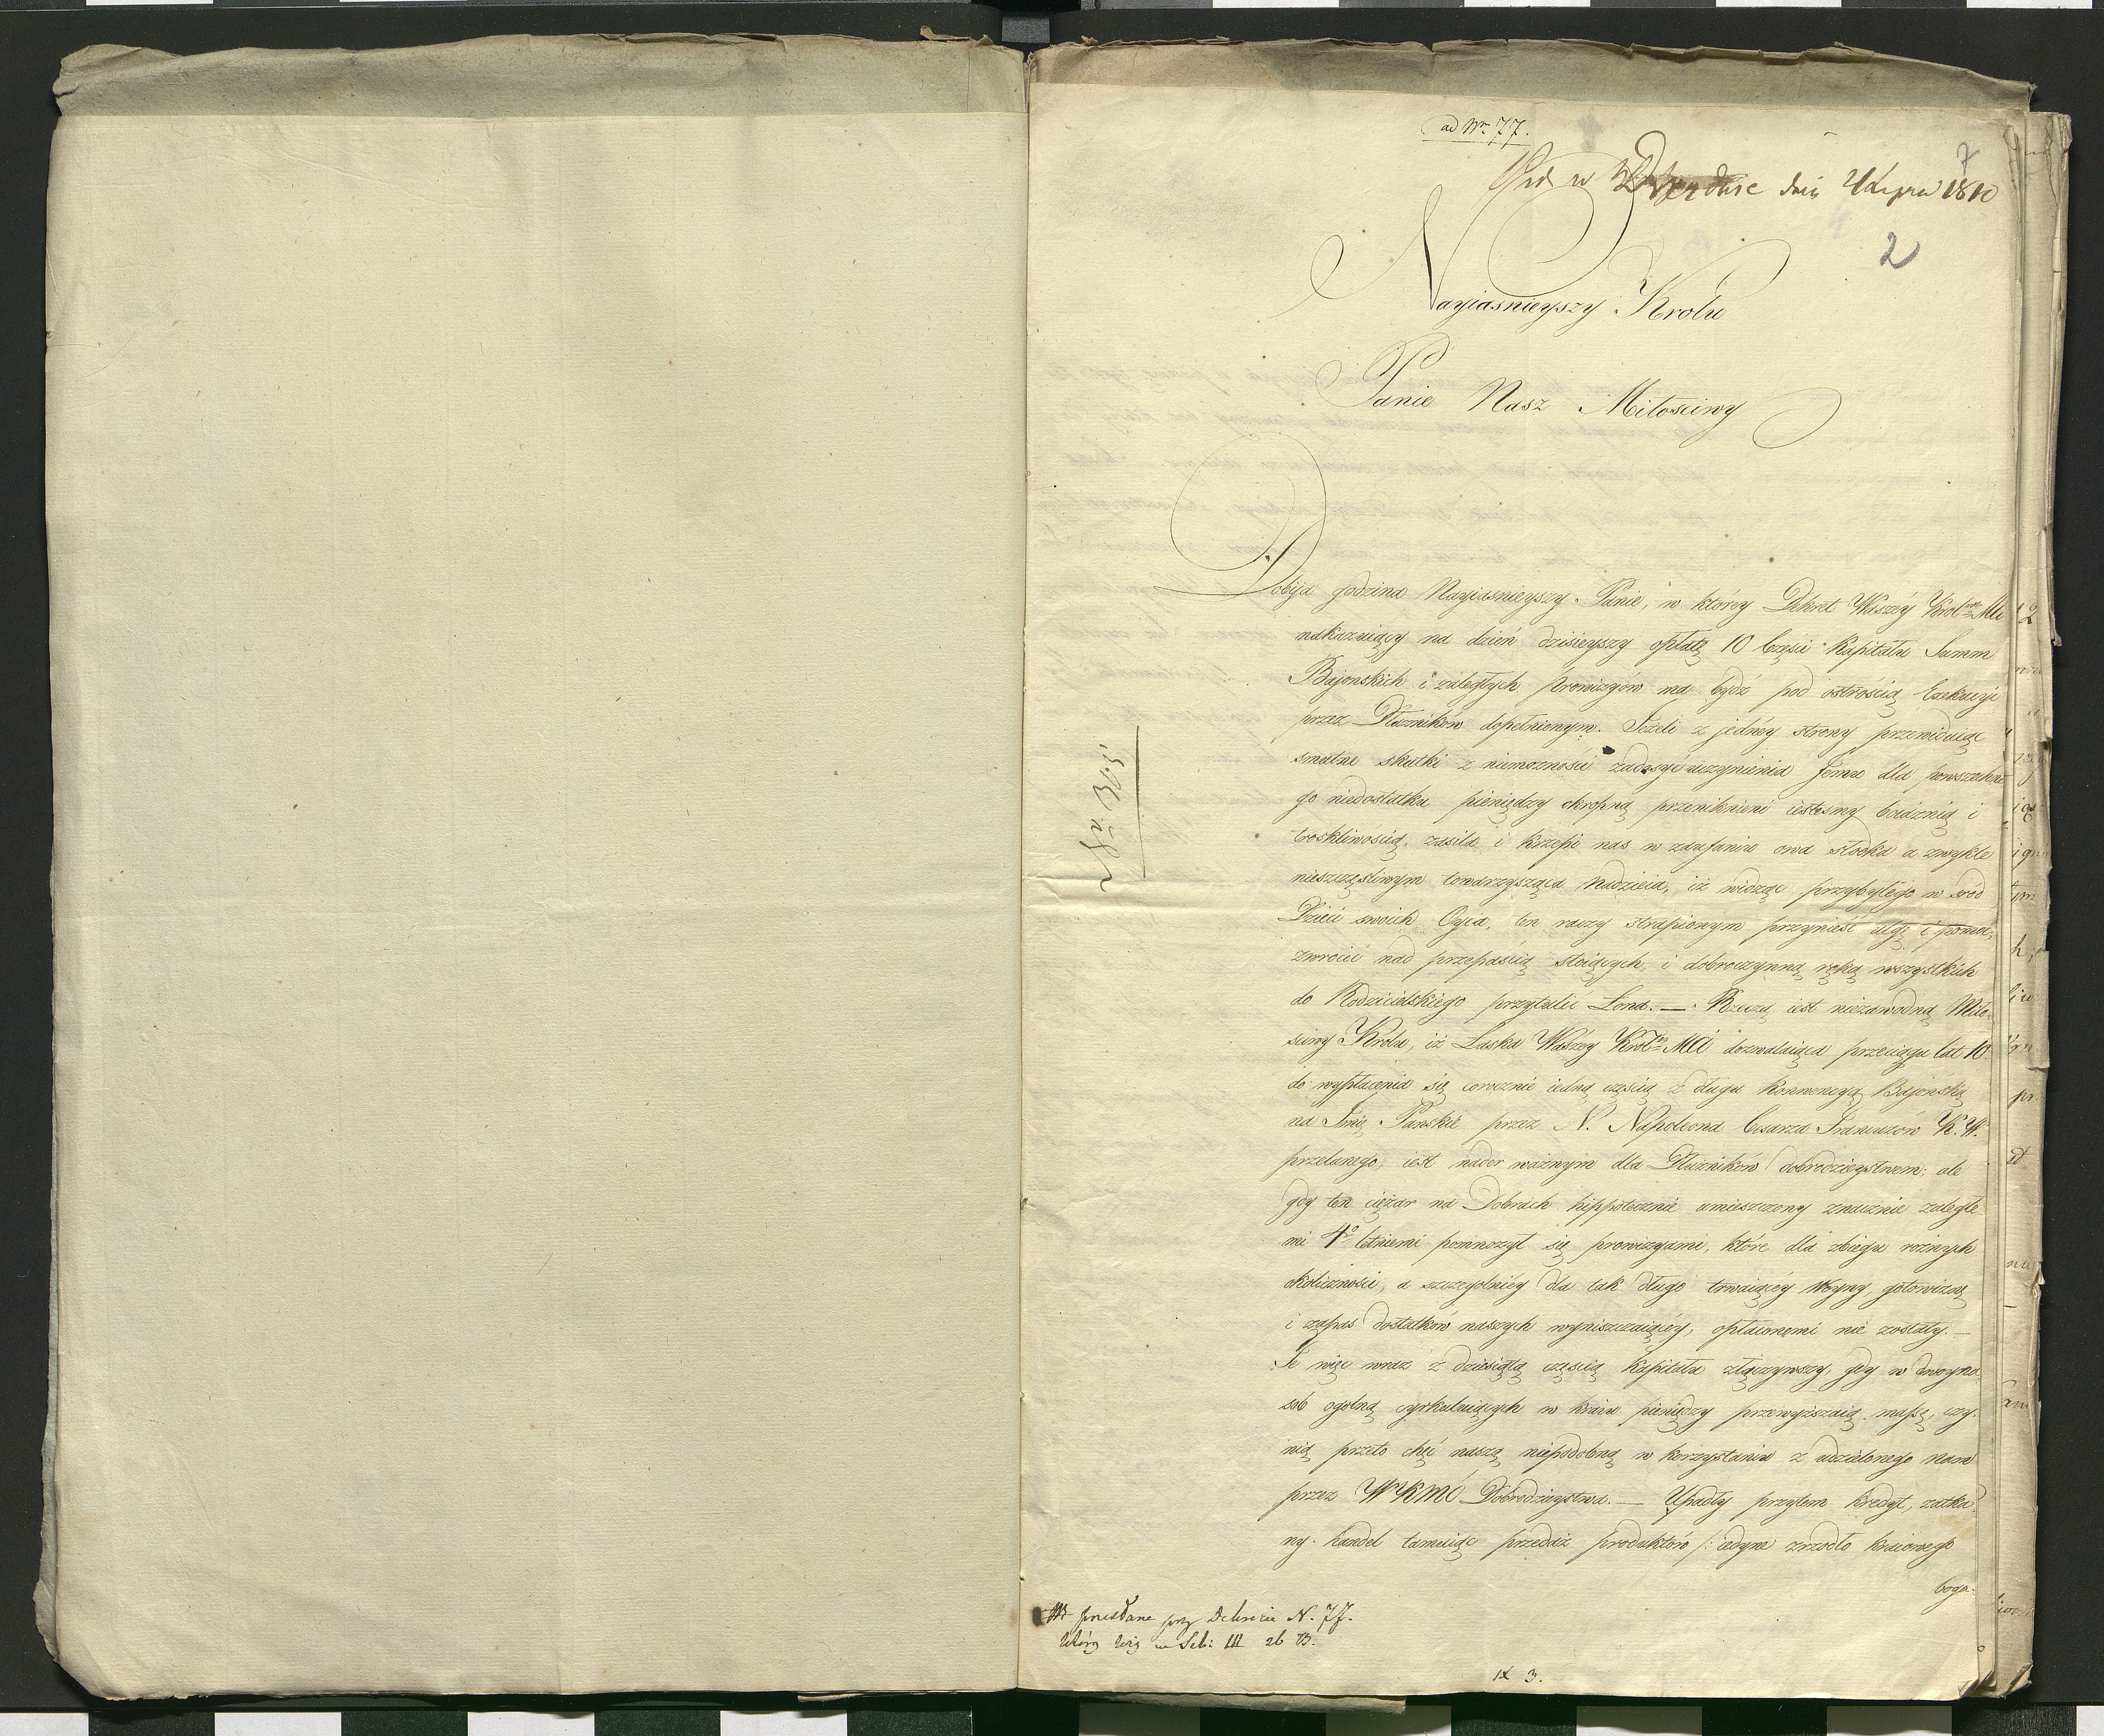 ad Nr. 77.
7
w dnia 1810
2
Nayiasnieyszy Krolu
Panie Nasz Miłosciwy
Dobija godzina Nayiasnieyszy Panie, w którey Dekret Waszéy Krol. Mci
nakazuiący na dzień dzisieyszy opłatę 10 Częsci Kapitału Summ
Bajonskich i zaległych Prowizyów ma bydź pod ostrością Exekucyi
przez Dłużników dopełnionym. Jeżeli z jednéy strony przewiduiąc
smutne skutki z niemożności zadosyć uczynienia Jemu dla powszechne
go niedostatku pieniędzy okropną przeniknieni iestesmy boiaznią i
troskliwoscią, zasila i krzepi nas w zaufaniu owa słodka a zwykle
nieszczęsliwym towarzysząca nadzieia, iż widząc przybyłego w sród
Dzieci swoich Oyca, ten raczy strapionym przynieść ulgę i
zwrocić nad przepaścią stoiących, i dobroczynną ręką wszystkich
do Rodzicielskiego przytulić Łona. — Rzeczą iest niezawodną Miło-
sciwy Krolu, iż Łaska Waszey Krol. Mci dozwalaiąca przeciągu lat 10
do wypłacenia się corocznie iedną częscią z długu konwencyą Bajońską
na Imię Panskie przez N. Napoleona Cesarza Francuzów K. W.
przelanego, iest nader ważnym dla Dłużników dobrodzieystwem; ale
gdy ten ciężar na Dobrach hippotecznie umieszczony znacznie zaległe
mi 4o letniemi pomnożył się prowizyami, które dla zbiegu rożnych
okoliczności, a szczegolniey dla tak długo trwaiącéy Woyny, gotowiznę
i zapas dostatków naszych wyniszczaiącéy, opłaconemi nie zostały. —
Te więc wraz z dziesiątą częścią Kapitału złączywszy, gdy w dwoyna
sób ogolną cyrkuluiących w kraiu pieniędzy przewyższaią massę, czy-
nią przeto chęć naszą niepodobną w korzystaniu z udzielonego nam
przez WKMC Dobrodzieystwa. — Upadły przytem kredyt, zatka-
ny handel tamuiąc przedaż produktów /: iedyne zrzodło kraiowego
boga-
Nr. 303
NB przesłane przy Dekrecie N. 77.
Który leży w Seb: III ab B.
IX 3.